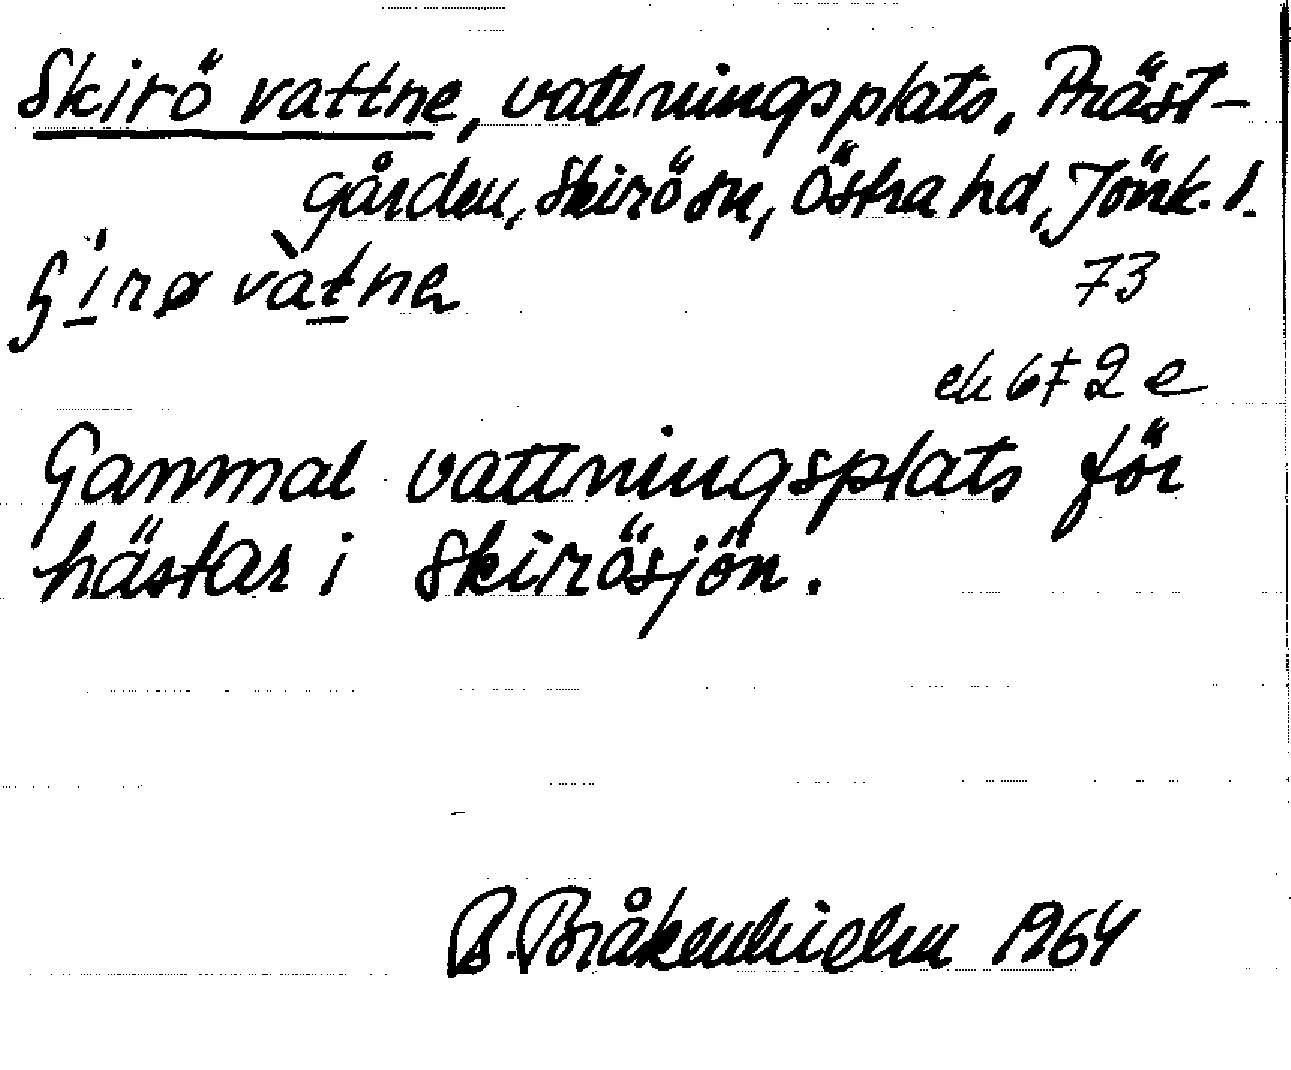 Skirö vattne, vattningsplats, Präst-
gården, Skirö sn, Östra hd, Jönk. l.
vàtne
73
ek 6F 2 e
Gammal vattningsplats för
hästar i Skirösjön.
B. Bråkenhielm 1964